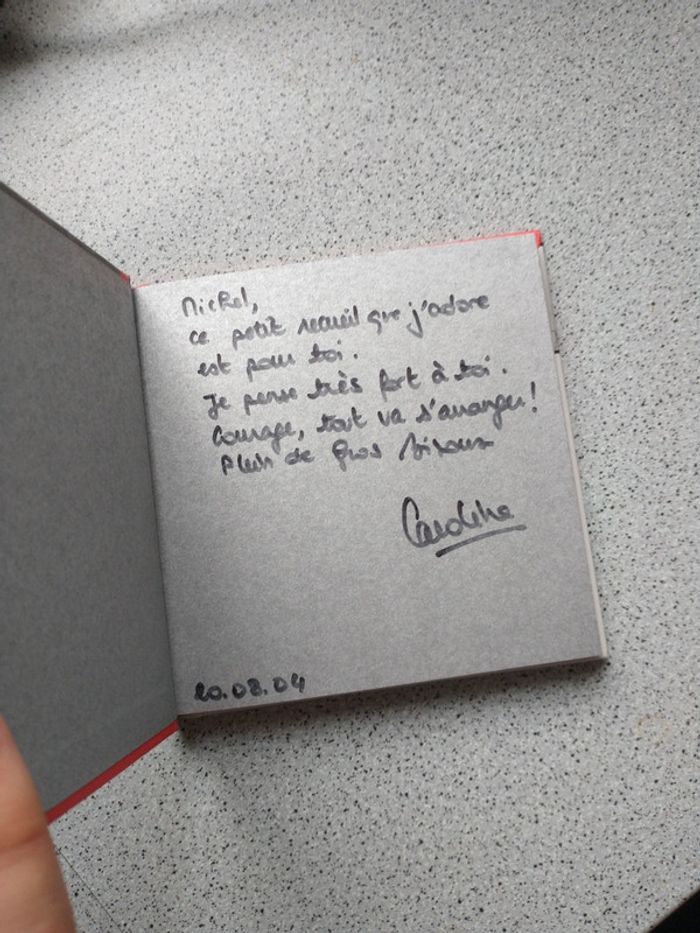 Michel,
ce petit recueil que j'adore
est pour toi.
Je pense très fort à toi.
Courage, tout va s'arranger!
Plein de gros bisoux
Caroline
20.08.04